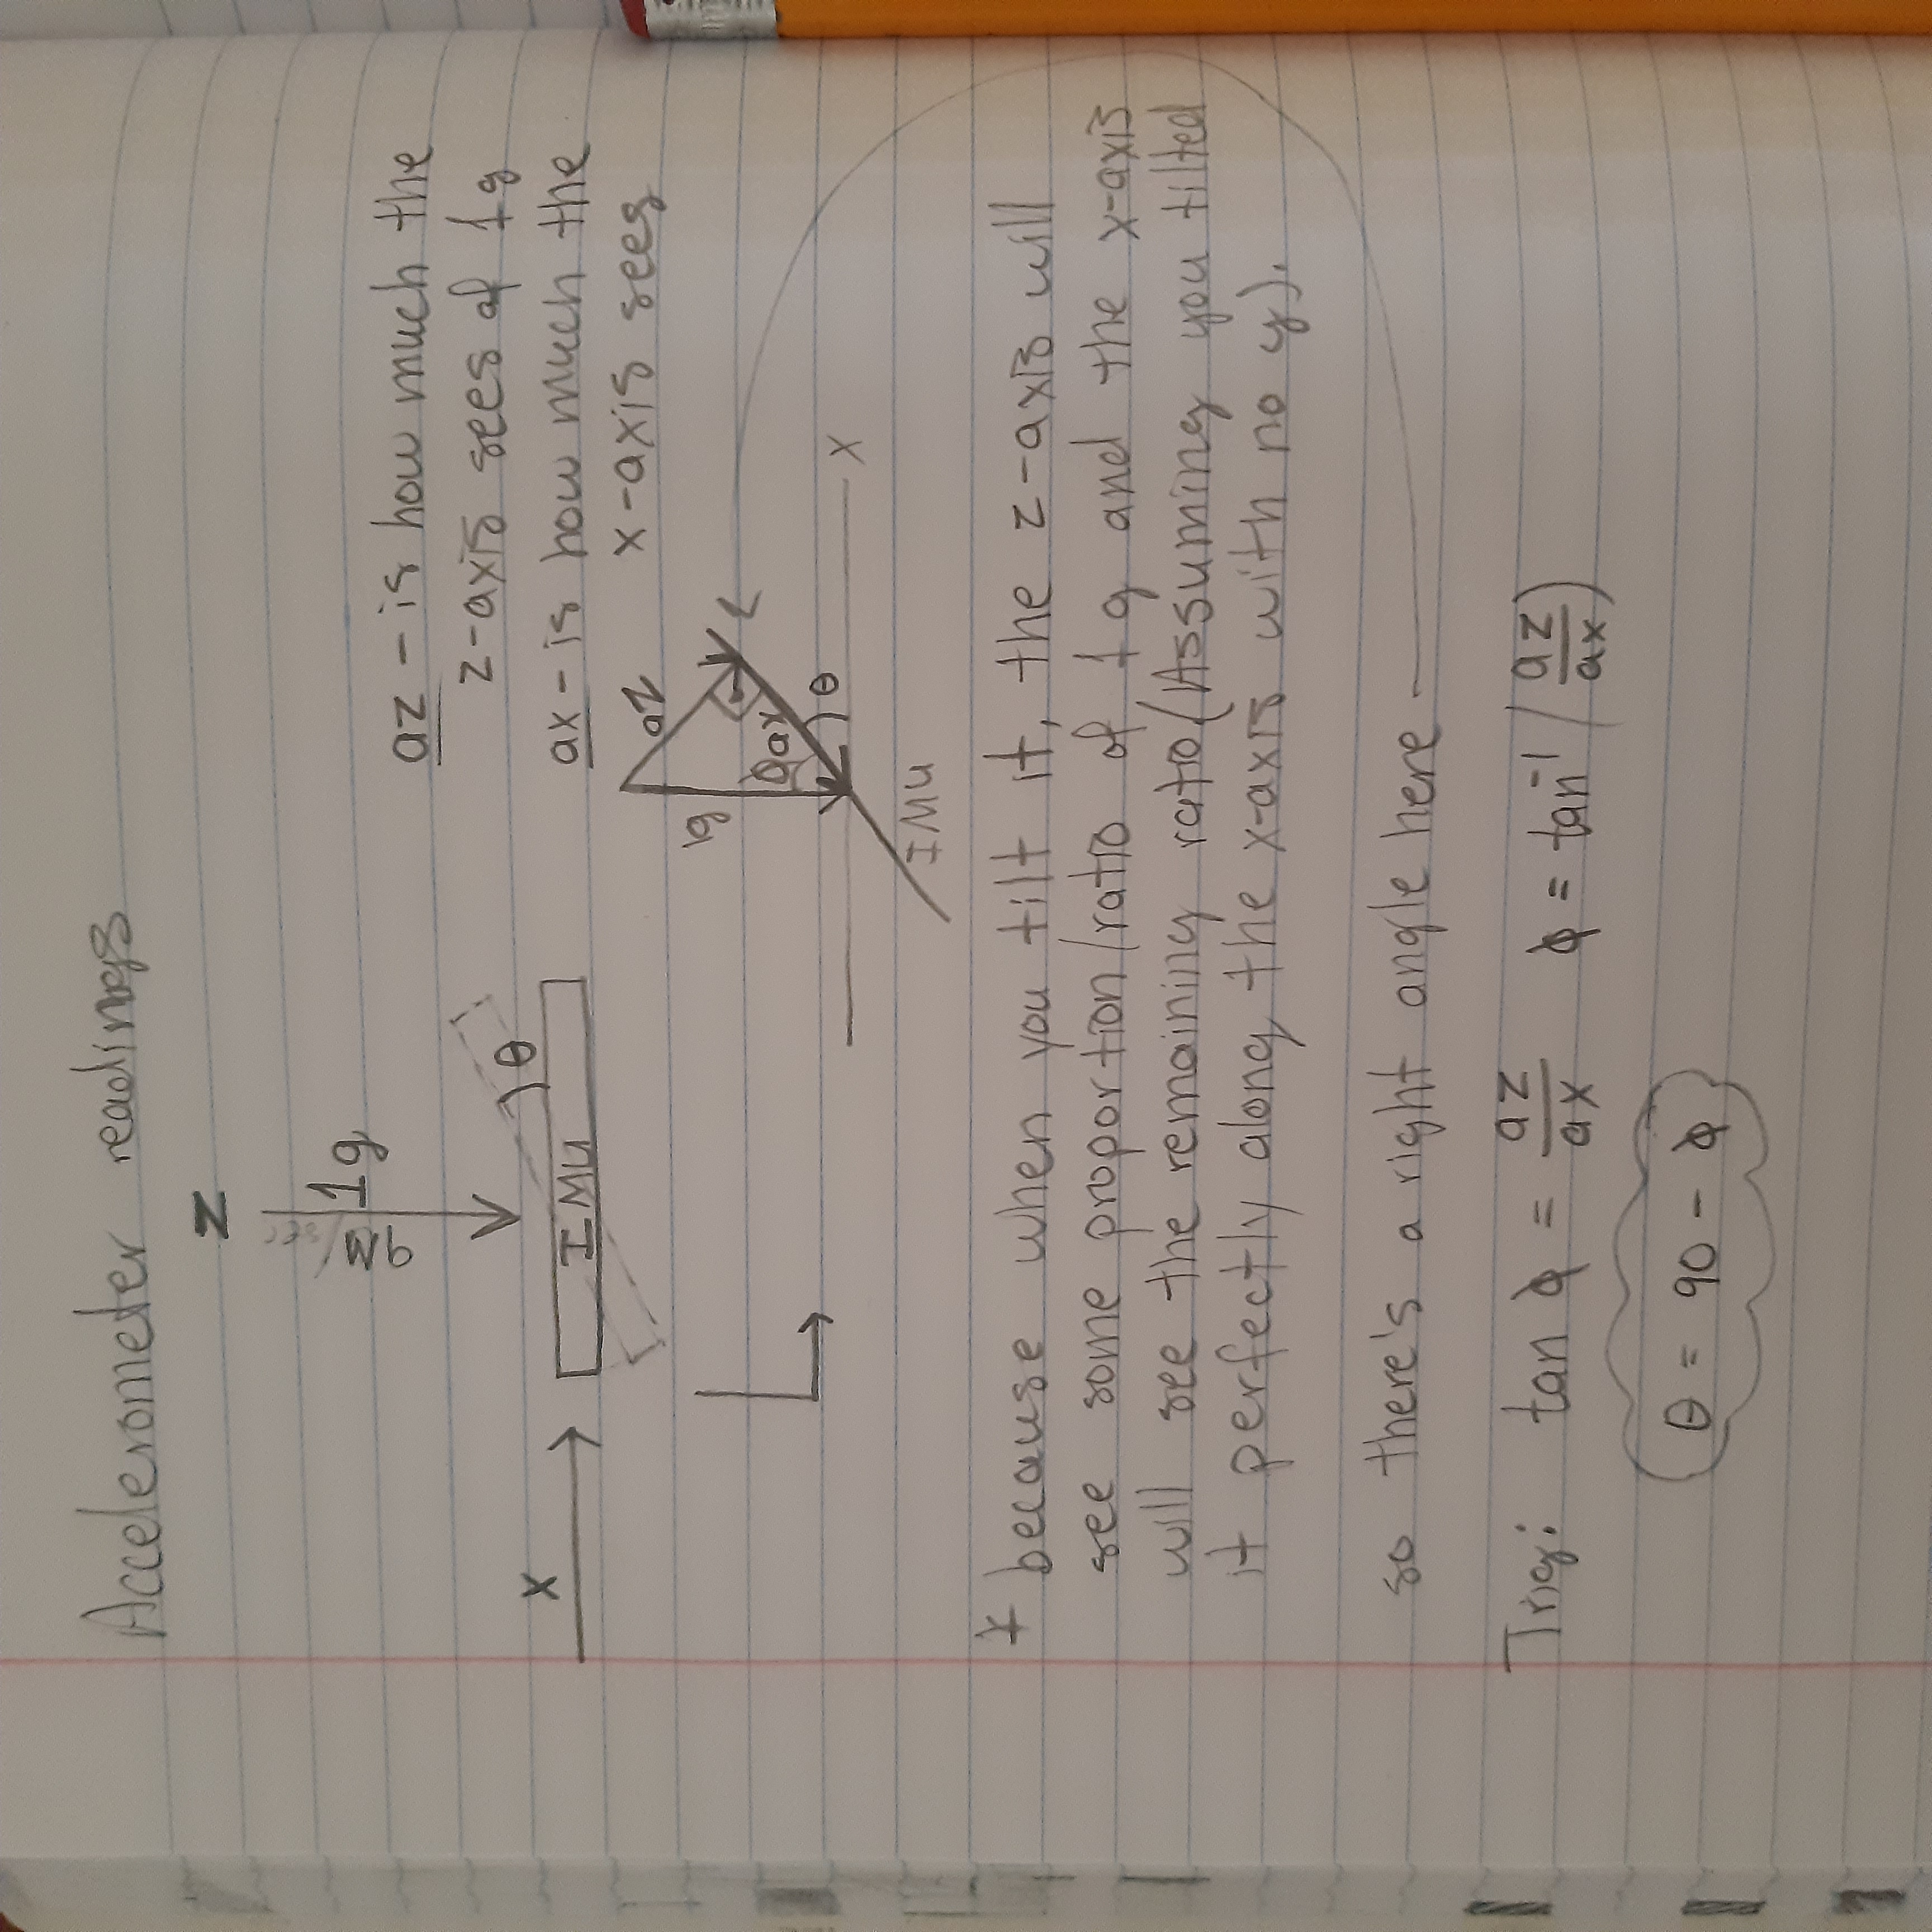 Accelerometer readings
Z
9M/sec
1g
x
θ
IMU
az - is how much the
z-axis sees of 1g
ax - is how much the
x-axis sees
az
1g
ϕ
ax
θ
X
IMU
* because when you tilt it, the z-axis will
see some proportion/ratio of 1g and the x-axis
will see the remaining ratio (Assuming you tilted
it perfectly along the x-axis with no y).
so there's a right angle here
Trig: tan ϕ = az/ax ϕ = tan⁻¹(az/ax)
θ = 90 - ϕ